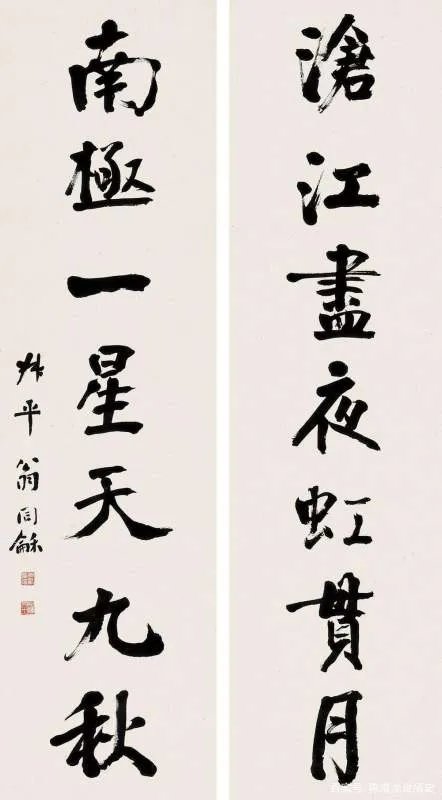 滄江盡夜虹貫月
南極一星天九秋
叔平翁同龢